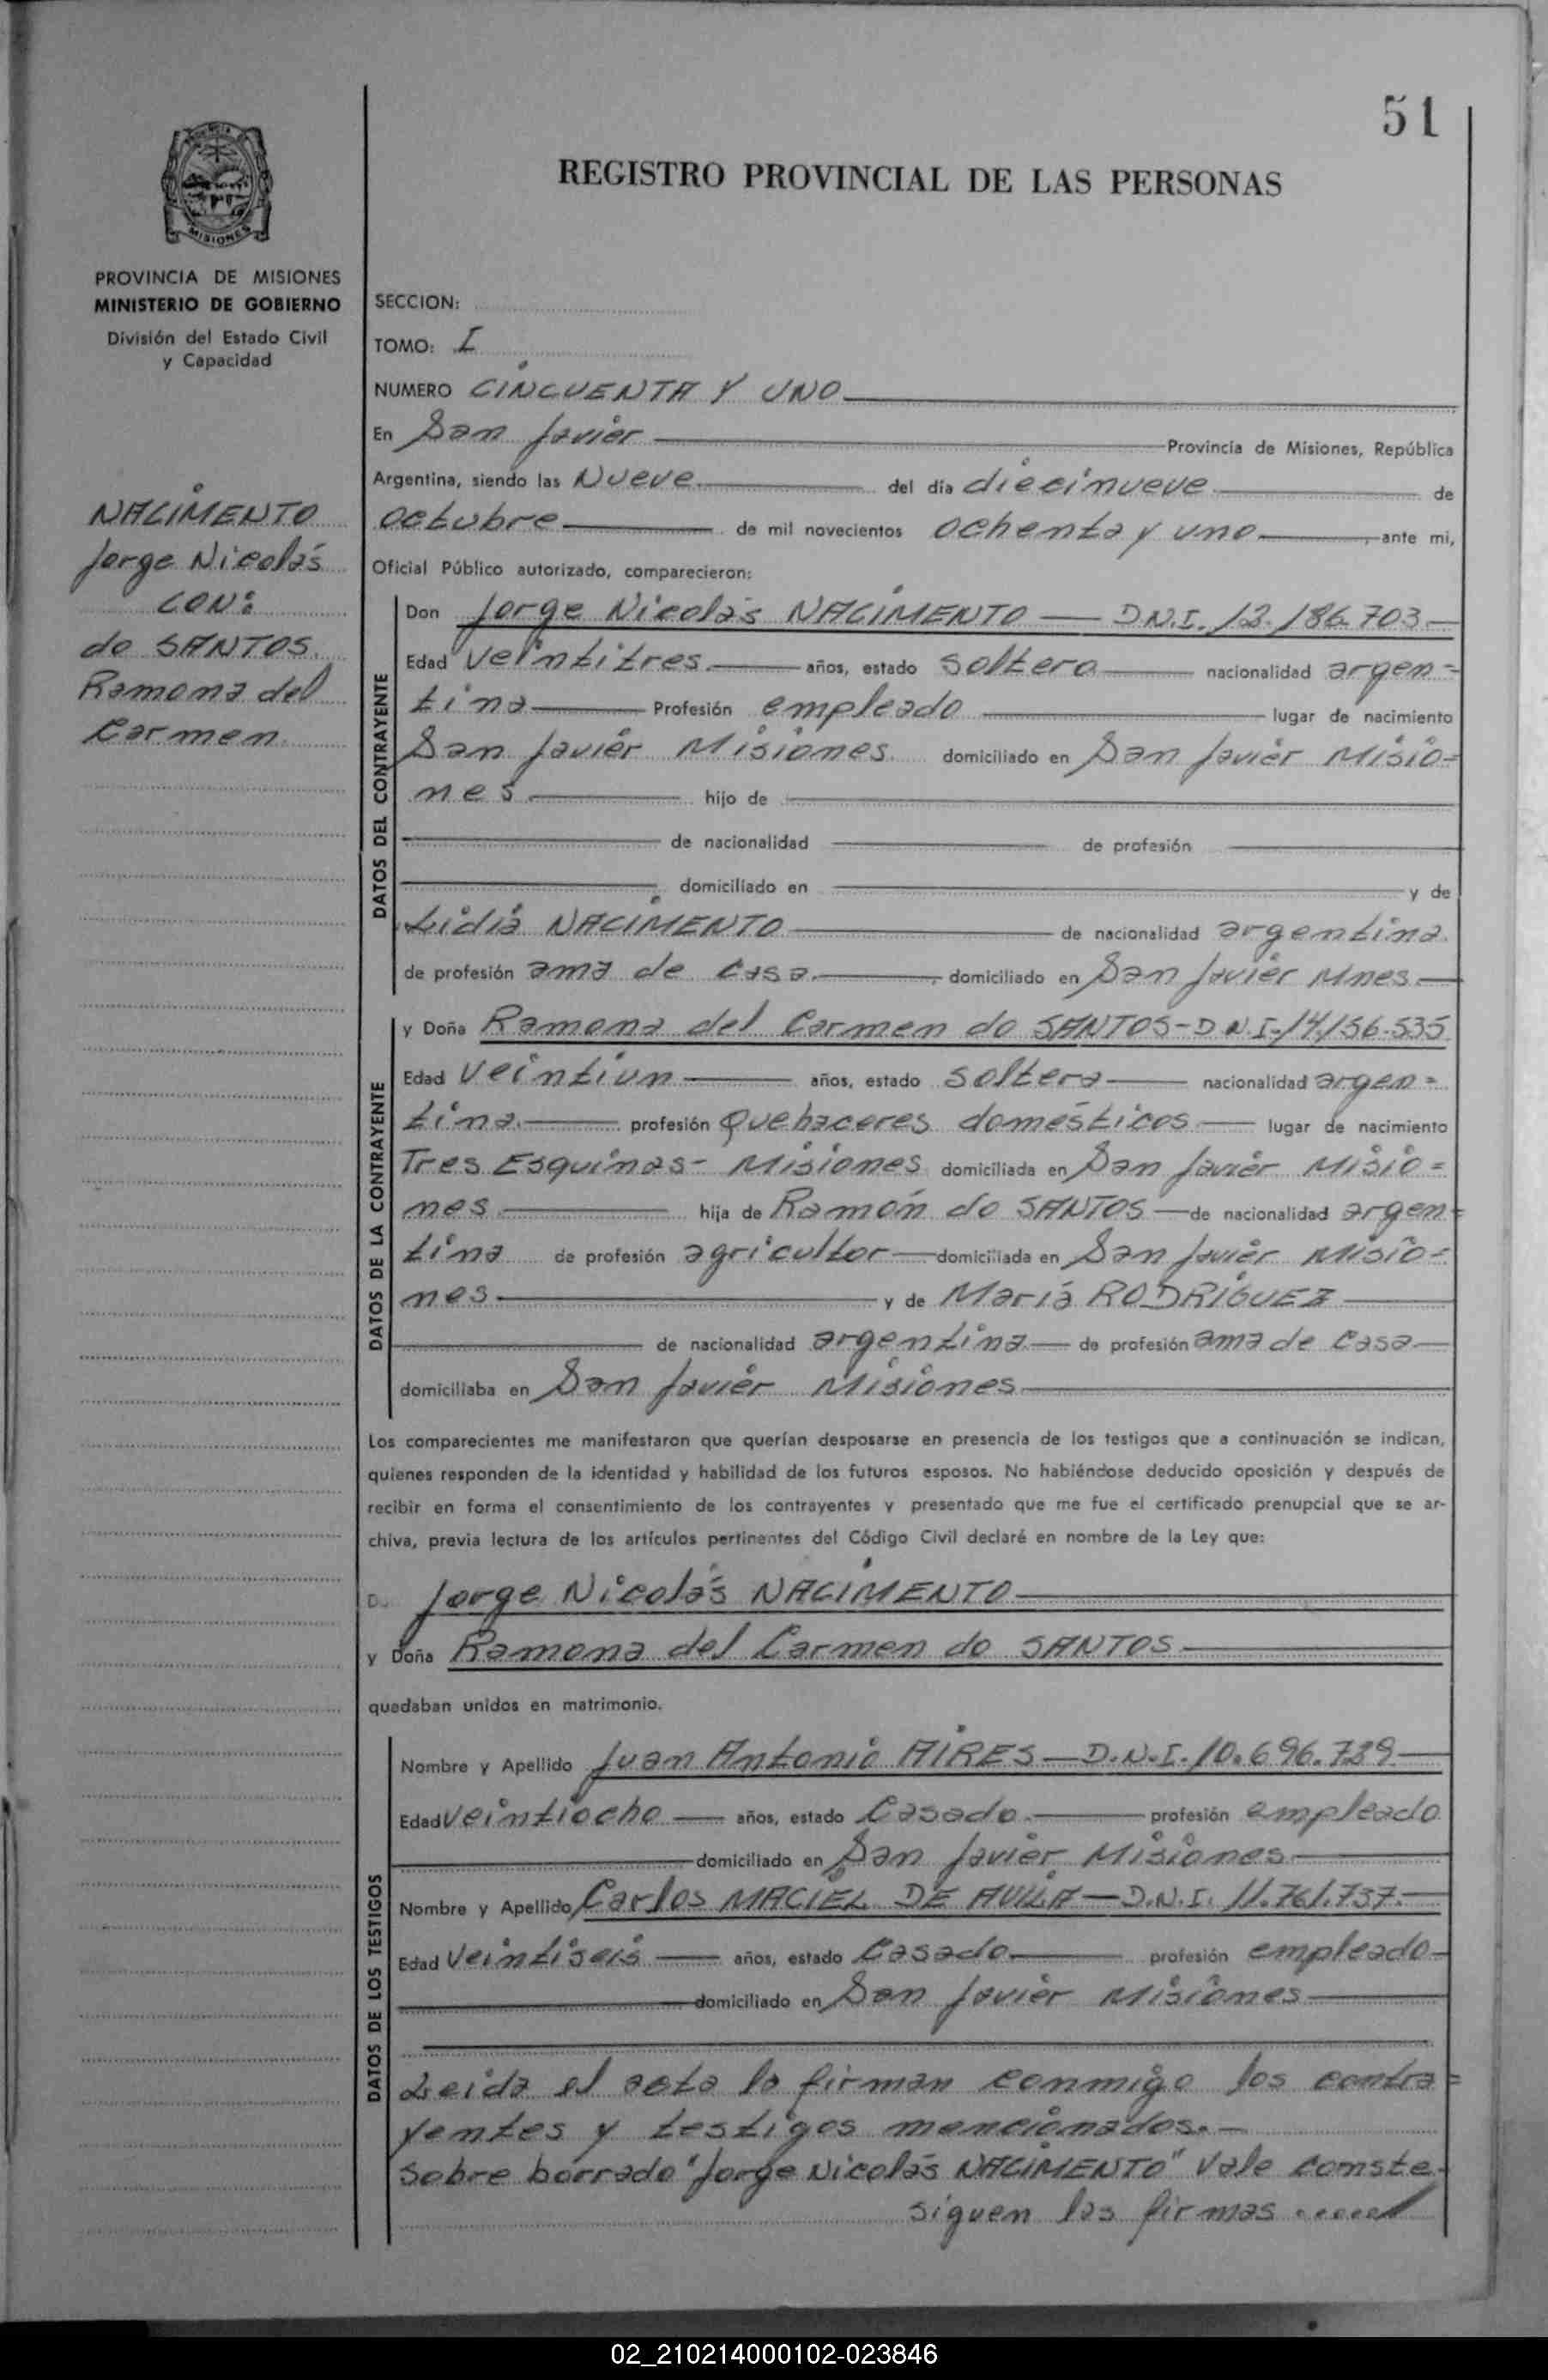 51
REGISTRO PROVINCIAL DE LAS PERSONAS
MISIONES
PROVINCIA DE MISIONES
MINISTERIO DE GOBIERNO
División del Estado Civil
y Capacidad
NACIMENTO
Jorge Nicolás
CON:
do SANTOS
Ramona del
Carmen
SECCION:
TOMO: I
NUMERO CINCUENTA Y UNO
En San Javier Provincia de Misiones, República
Argentina, siendo las Nueve del día diecinueve de
octubre de mil novecientos ochenta y uno, ante mi,
Oficial Público autorizado, comparecieron:
DATOS DEL CONTRAYENTE
Don Jorge Nicolás NACIMENTO — D.N.I. 12.186.703
Edad veintitres años, estado soltero nacionalidad argen=
tina Profesión empleado lugar de nacimiento
San Javier Misiones domiciliado en San Javier Misio=
nes hijo de
de nacionalidad de profesión
domiciliado en y de
Lidia NACIMENTO de nacionalidad argentina
de profesión ama de casa, domiciliado en San Javier Mnes
DATOS DE LA CONTRAYENTE
y Doña Ramona del Carmen do SANTOS - D.N.I. 14.156.535
Edad veintiun años, estado soltera nacionalidad argen=
tina profesión Quehaceres domésticos lugar de nacimiento
Tres Esquinas - Misiones domiciliada en San Javier Misio=
nes hija de Ramón do SANTOS de nacionalidad argen=
tina de profesión agricultor domiciliada en San Javier Misio=
nes y de María RODRIGUEZ
de nacionalidad argentina de profesión ama de casa
domiciliaba en San Javier Misiones
Los comparecientes me manifestaron que querían desposarse en presencia de los testigos que a continuación se indican,
quienes responden de la identidad y habilidad de los futuros esposos. No habiéndose deducido oposición y después de
recibir en forma el consentimiento de los contrayentes y presentado que me fue el certificado prenupcial que se ar-
chiva, previa lectura de los artículos pertinentes del Código Civil declaré en nombre de la Ley que:
Jorge Nicolás NACIMENTO
y Doña Ramona del Carmen do SANTOS
quedaban unidos en matrimonio.
DATOS DE LOS TESTIGOS
Nombre y Apellido Juan Antonio AIRES — D.N.I. 10.696.739
Edad veintiocho años, estado casado profesión empleado
domiciliado en San Javier Misiones
Nombre y Apellido Carlos MACIEL DE AVILA — D.N.I. 11.761.737.
Edad veintiseis años, estado casado profesión empleado
domiciliado en San Javier Misiones
Leida el acta la firman conmigo los contra=
yentes y testigos mencionados.—
Sobre borrado "Jorge Nicolás NACIMENTO" Vale conste.
siguen las firmas ......
02_210214000102-023846